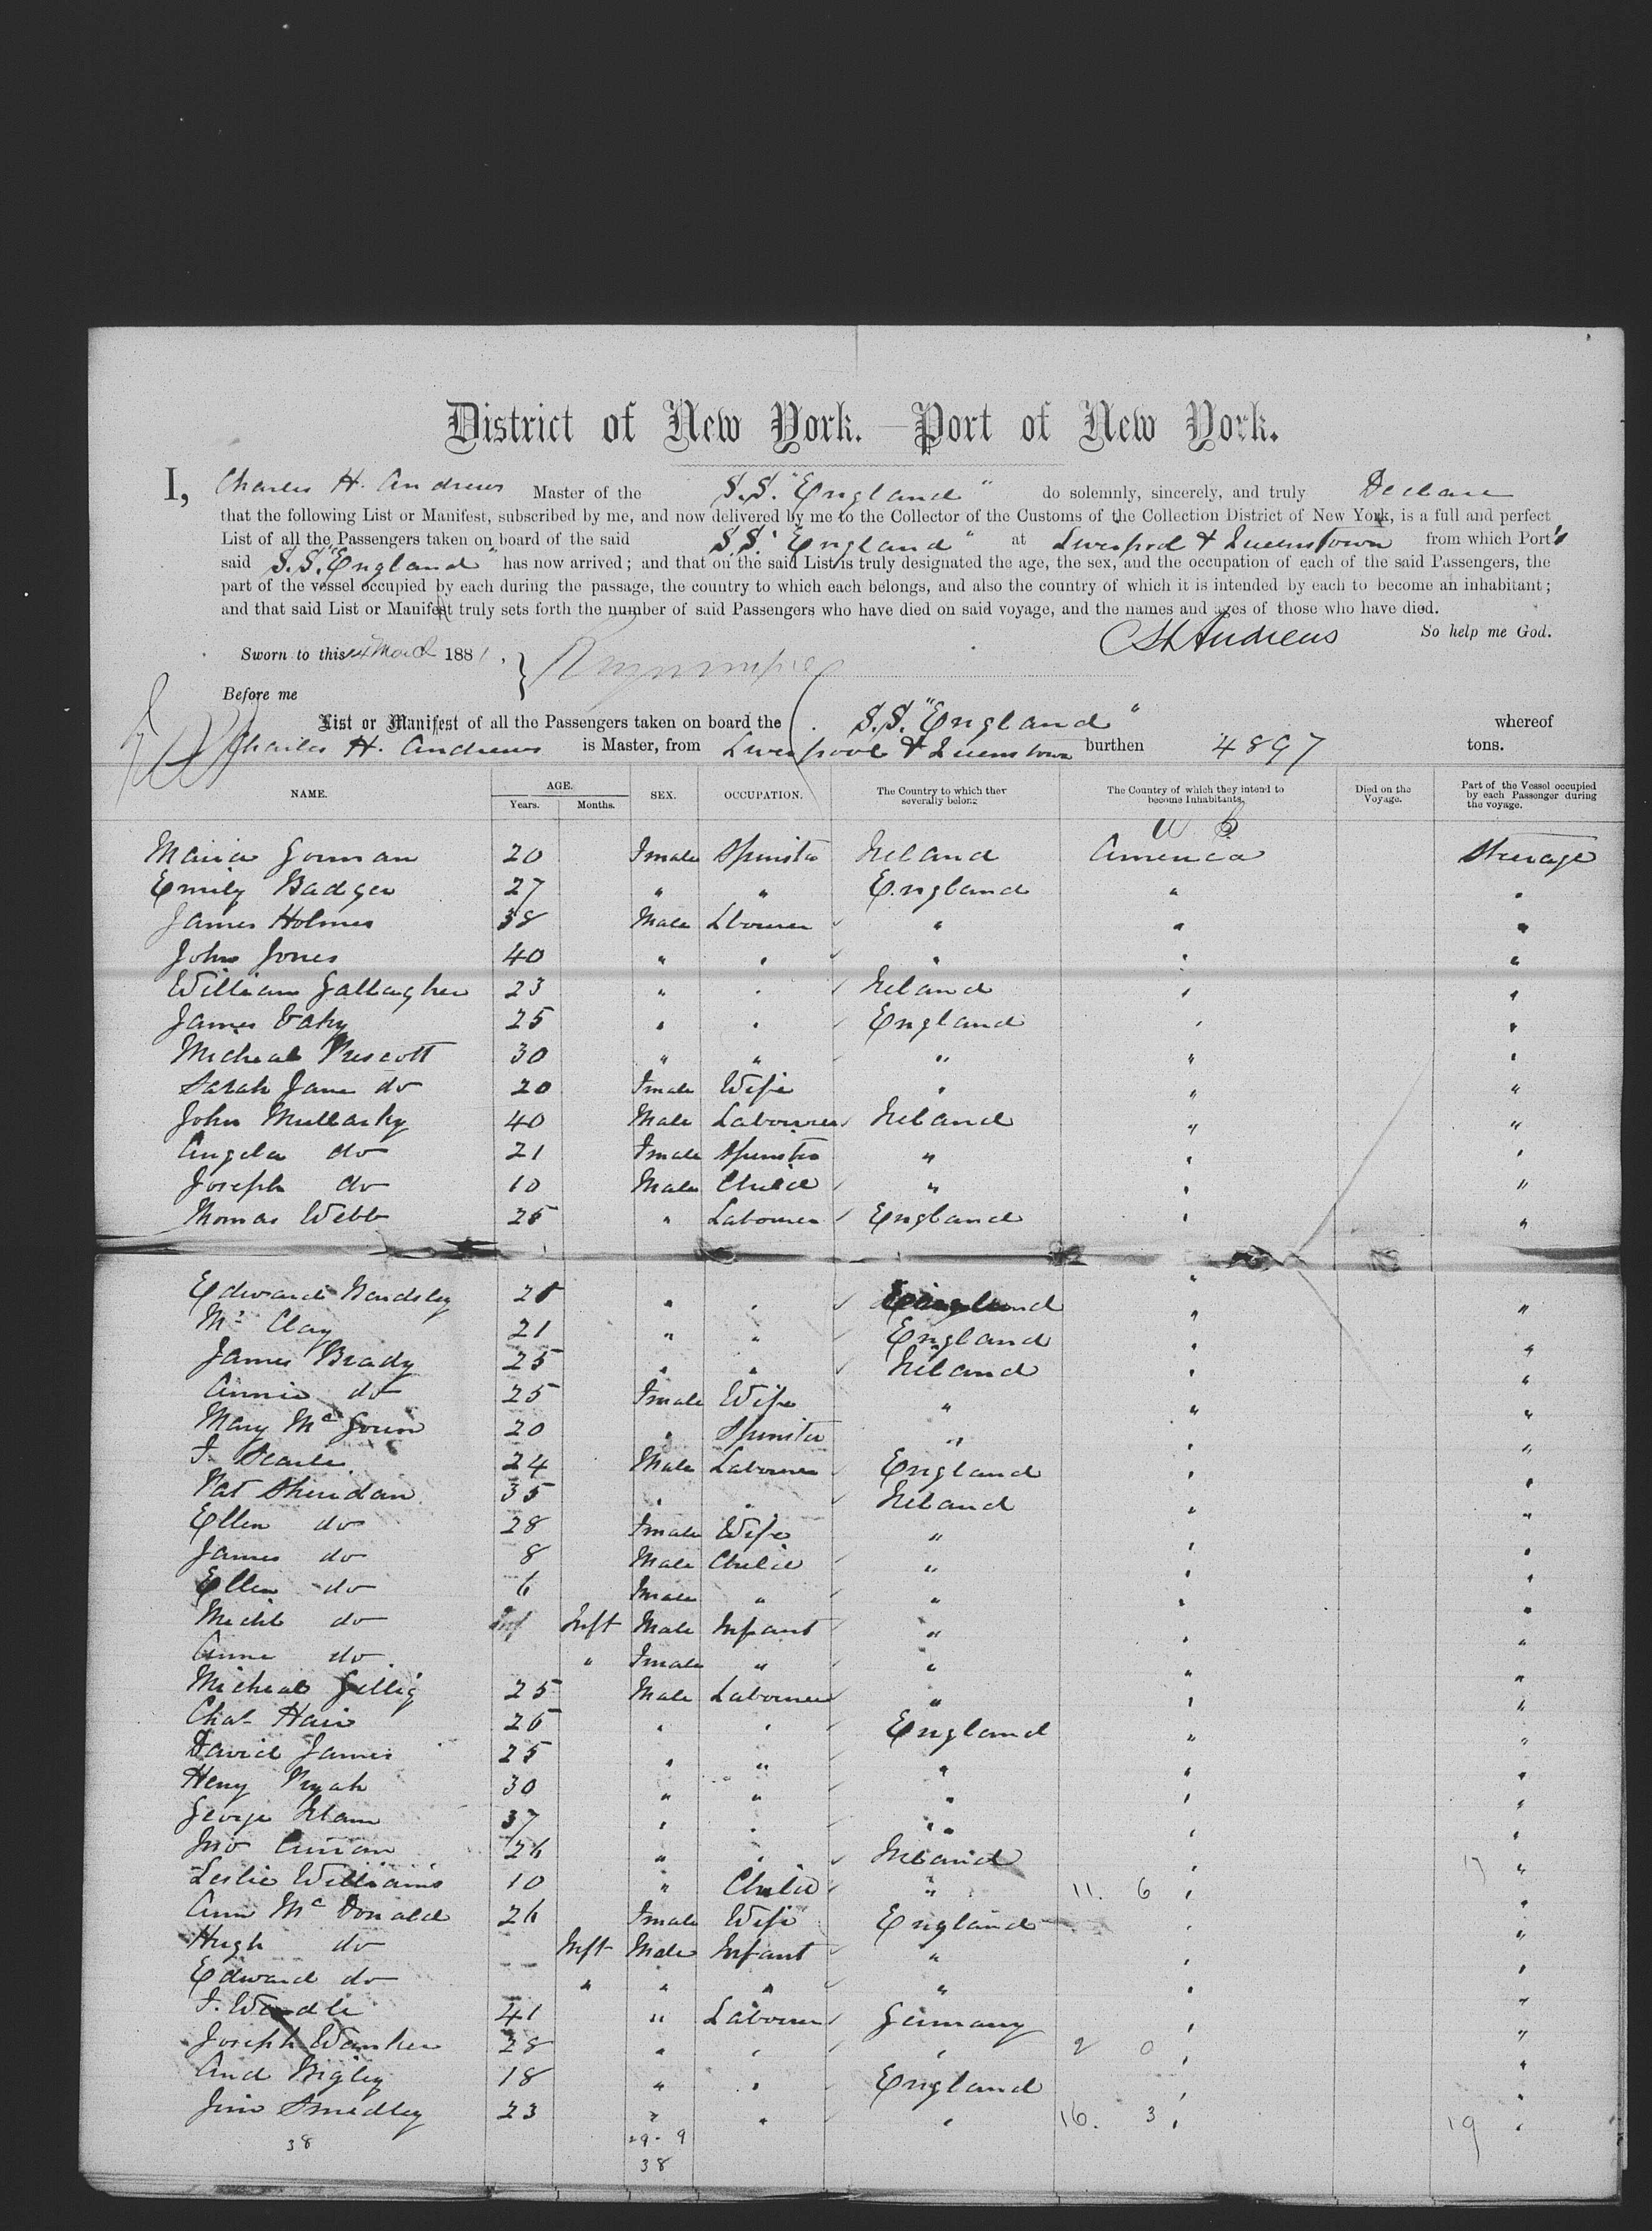 District of New York.—Port of New York.
I, Charles H. Andrews Master of the S.S. "England" do solemnly, sincerely, and truly Declare
that the following List or Manifest, subscribed by me, and now delivered by me to the Collector of the Customs of the Collection District of New York, is a full and perfect
List of all the Passengers taken on board of the said S.S. "England" at Liverpool & Queenstown from which Port's
said S.S. "England" has now arrived; and that on the said List is truly designated the age, the sex, and the occupation of each of the said Passengers, the
part of the vessel occupied by each during the passage, the country to which each belongs, and also the country of which it is intended by each to become an inhabitant;
and that said List or Manifest truly sets forth the number of said Passengers who have died on said voyage, and the names and ages of those who have died.
CH Andrews So help me God.
Sworn to this 1881,
Before me
List or Manifest of all the Passengers taken on board the S.S. "England" whereof
Charles H. Andrews is Master, from Liverpool & Queenstown burthen 4897 tons.
NAME. AGE. Years. Months. SEX. OCCUPATION. The Country to which they severally belong The Country of which they intend to become Inhabitants. Died on the Voyage. Part of the Vessel occupied by each Passenger during the voyage.
Maria Gorman 20 Fmale Spinster Ireland America Steerage
Emily Badger 27 " " England " "
James Holmes 38 Male Lbourer " " "
John Jones 40 " " " " "
William Gallagher 23 " " Ireland " "
James 25 " " England " "
Micheal Prescott 30 " " " " "
Sarah Jane do 20 Fmale Wife " " "
John Mullarky 40 Male Labourer Ireland " "
Angela do 21 Fmale Spinster " " "
Joseph do 10 Male Child " " "
Thomas Webb 25 " Labourer England " "
Edward Bardsley " " England " "
Mr Clay 21 " " England " "
James Brady 25 " " Ireland " "
Annie do 25 Fmale Wife " " "
Mary Mc Gowin 20 " Spinster " " "
Searle 24 Male Labourer England " "
Pat Sheridan 35 " " Ireland " "
Ellen do 28 Fmale Wife " " "
James do 8 Male Child " " "
Ellen do 6 Fmale " " " "
Michl do Inft Male Infant " " "
Anne do " Fmale " " " "
Micheal 25 Male Labourer " " "
Chas Hair " " England " "
David James 25 " " " " "
Heny 30 " " " " "
George 37 " " " " "
Jno Curran 26 " " Ireland " "
Leslie Williams 10 " Child " 11. 6 " "
Ann Mc Donald 26 Fmale Wife England " "
Hugh do Inft Male Infant " " "
Edward do " " " " " "
41 " Labourer Germany " "
Joseph 28 " " " 2 0 " "
And Bigley 18 " " England " "
Jno Smedley 23 " " " 16. 3 " 19 "
38 29 - 9
38